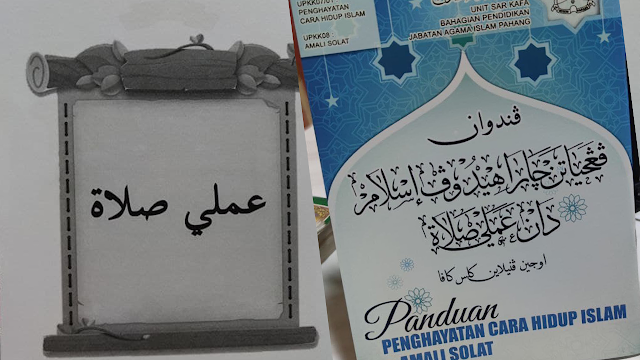 عملي صلاة
UPKK07/01
PENGHAYATAN
CARA HIDUP ISLAM
UPKK08
AMALI SOLAT
UNIT SAR KAFA
BAHAGIAN PENDIDIKAN
JABATAN AGAMA ISLAM PAHANG
ڤندوان
ڤڠحياتن چارا هيدوڤ إسلام
دان عملي صلاة
اوجين ڤنيلاين کلس كافا
Panduan
PENGHAYATAN CARA HIDUP ISLAM
AMALI SOLAT